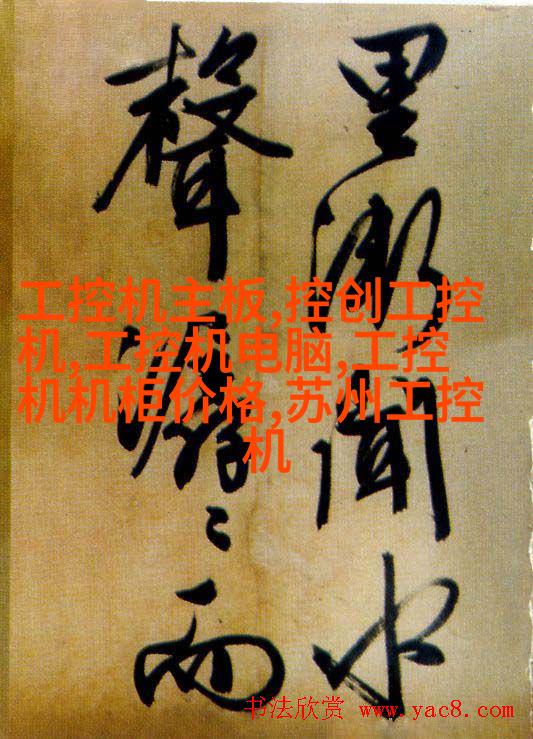 里渐闻水
聲潺〻而
工控机主板,控创工控
机,工控机电脑,工控
机机柜价格,苏州工控
机
书法欣赏 www.yac8.com